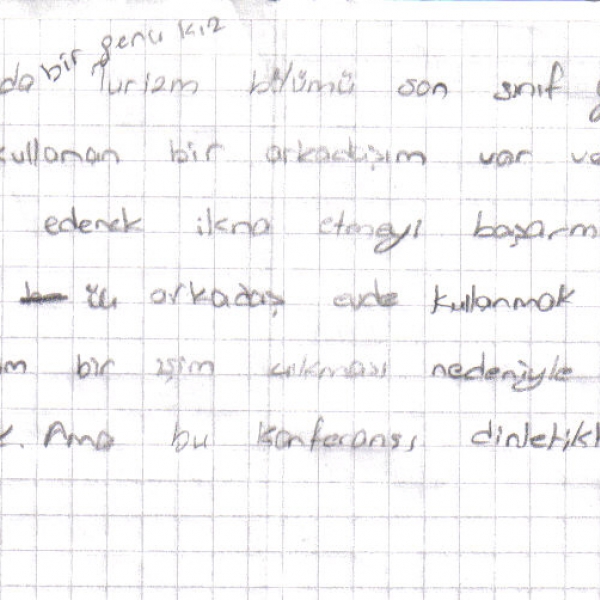 bir genç kız
da Turizm bölümü son sınıf
kullanan bir arkadaşım var ve
ederek ikna etmeyi başarm
üç arkadaş evde kullanmak
m bir işim çıkması nedeniyle
k. Ama bu konferansı dinletikt